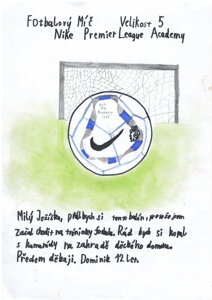 Fotbalový Míč Velikost 5
Nike Premier League Academy
Milý Ježíšku, přál bych si tento balón, protože jsem
začal chodit na tréninky fotbalu. Rád bych si kopal
s kamarády na zahradě dětského domova.
Předem děkuji. Dominik 12 let.